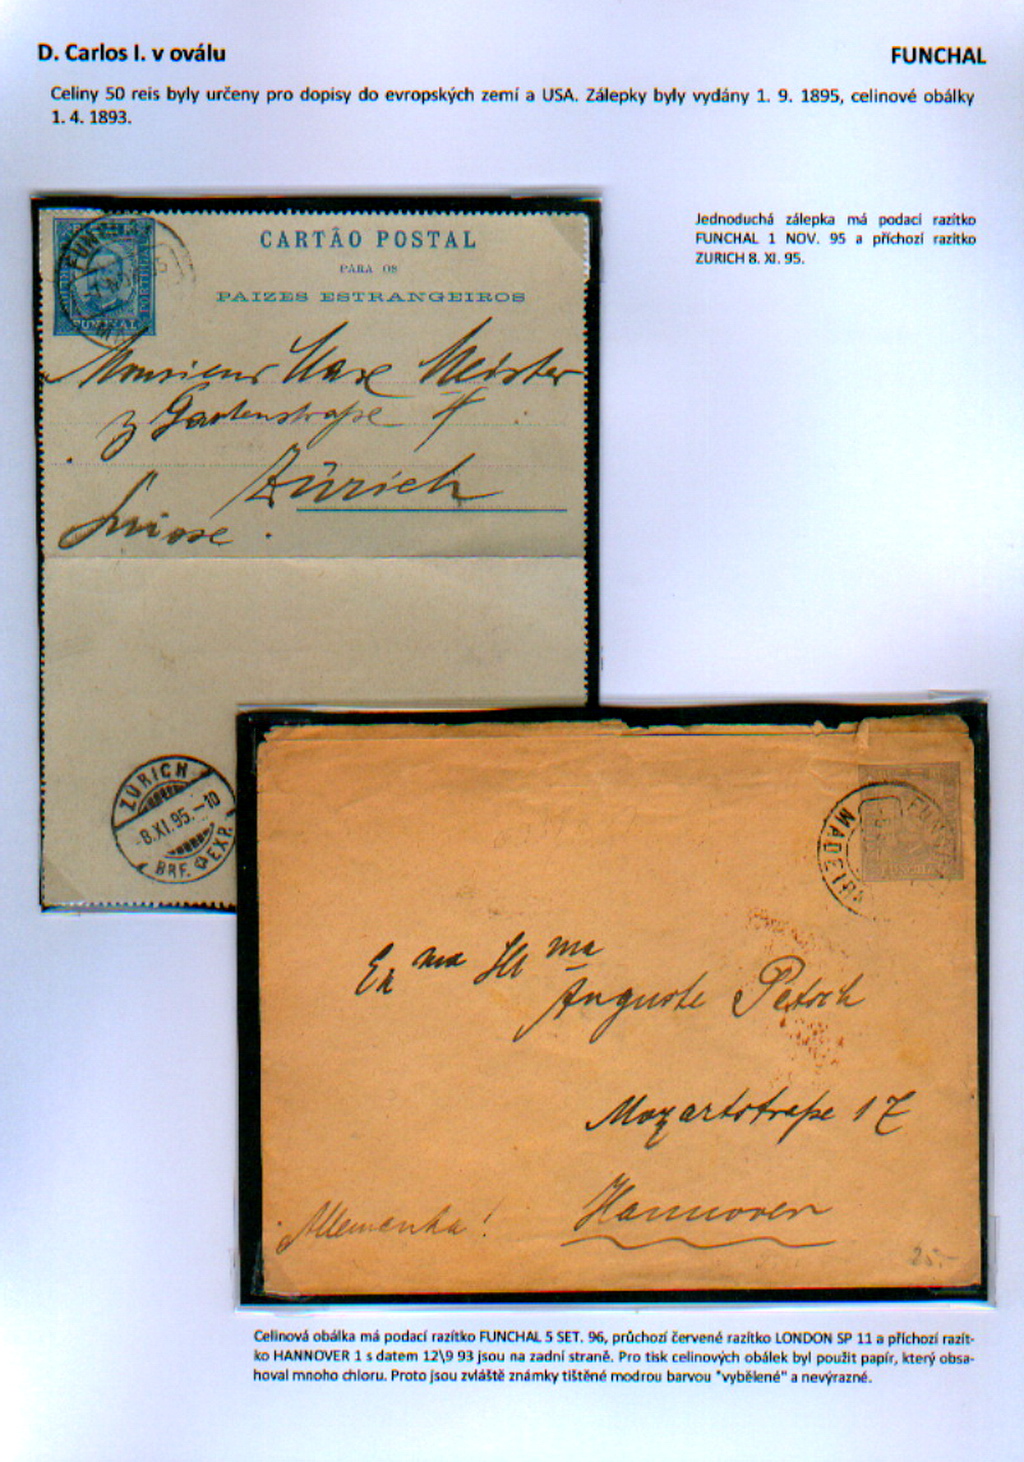 D. Carlos I. v oválu
FUNCHAL
Celiny 50 reis byly určeny pro dopisy do evropských zemí a USA. Zálepky byly vydány 1. 9. 1895, celinové obálky
1. 4. 1893.
Jednoduchá zálepka má podací razítko
FUNCHAL 1 NOV. 95 a příchozí razítko
ZURICH 8. XI. 95.
FUNCHAL
CARTÃO POSTAL
PARA OS
PAIZES ESTRANGEIROS
FUNCHAL
Monsieur Max Meister
Gartenstraße 4
Zürich
Suisse.
ZÜRICH
-8.XI.95.-10
BRF. EXP.
FUNCHAL
MADEIRA
Ex ma Il ma
Auguste Petsch
Mozartstraße 17
Hannover
Allemanha!
20.-
Celinová obálka má podací razítko FUNCHAL 5 SET. 96, průchozí červené razítko LONDON SP 11 a příchozí razít-
ko HANNOVER 1 s datem 12\9 93 jsou na zadní straně. Pro tisk celinových obálek byl použit papír, který obsa-
hoval mnoho chloru. Proto jsou zvláště známky tištěné modrou barvou "vybělené" a nevýrazné.